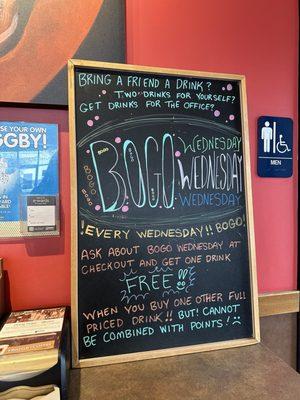 OSE YOUR OWN
GBY!
BRING A FRIEND A DRINK?
TWO DRINKS FOR YOURSELF?
GET DRINKS FOR THE OFFICE?
BOGO
BOGO
BOGO
BOGO
WEDNESDAY
WEDNESDAY
WEDNESDAY
!EVERY WEDNESDAY!! BOGO!
ASK ABOUT BOGO WEDNESDAY AT
CHECKOUT AND GET ONE DRINK
FREE!!
WHEN YOU BUY ONE OTHER FULL
PRICED DRINK!! BUT! CANNOT
BE COMBINED WITH POINTS! :(